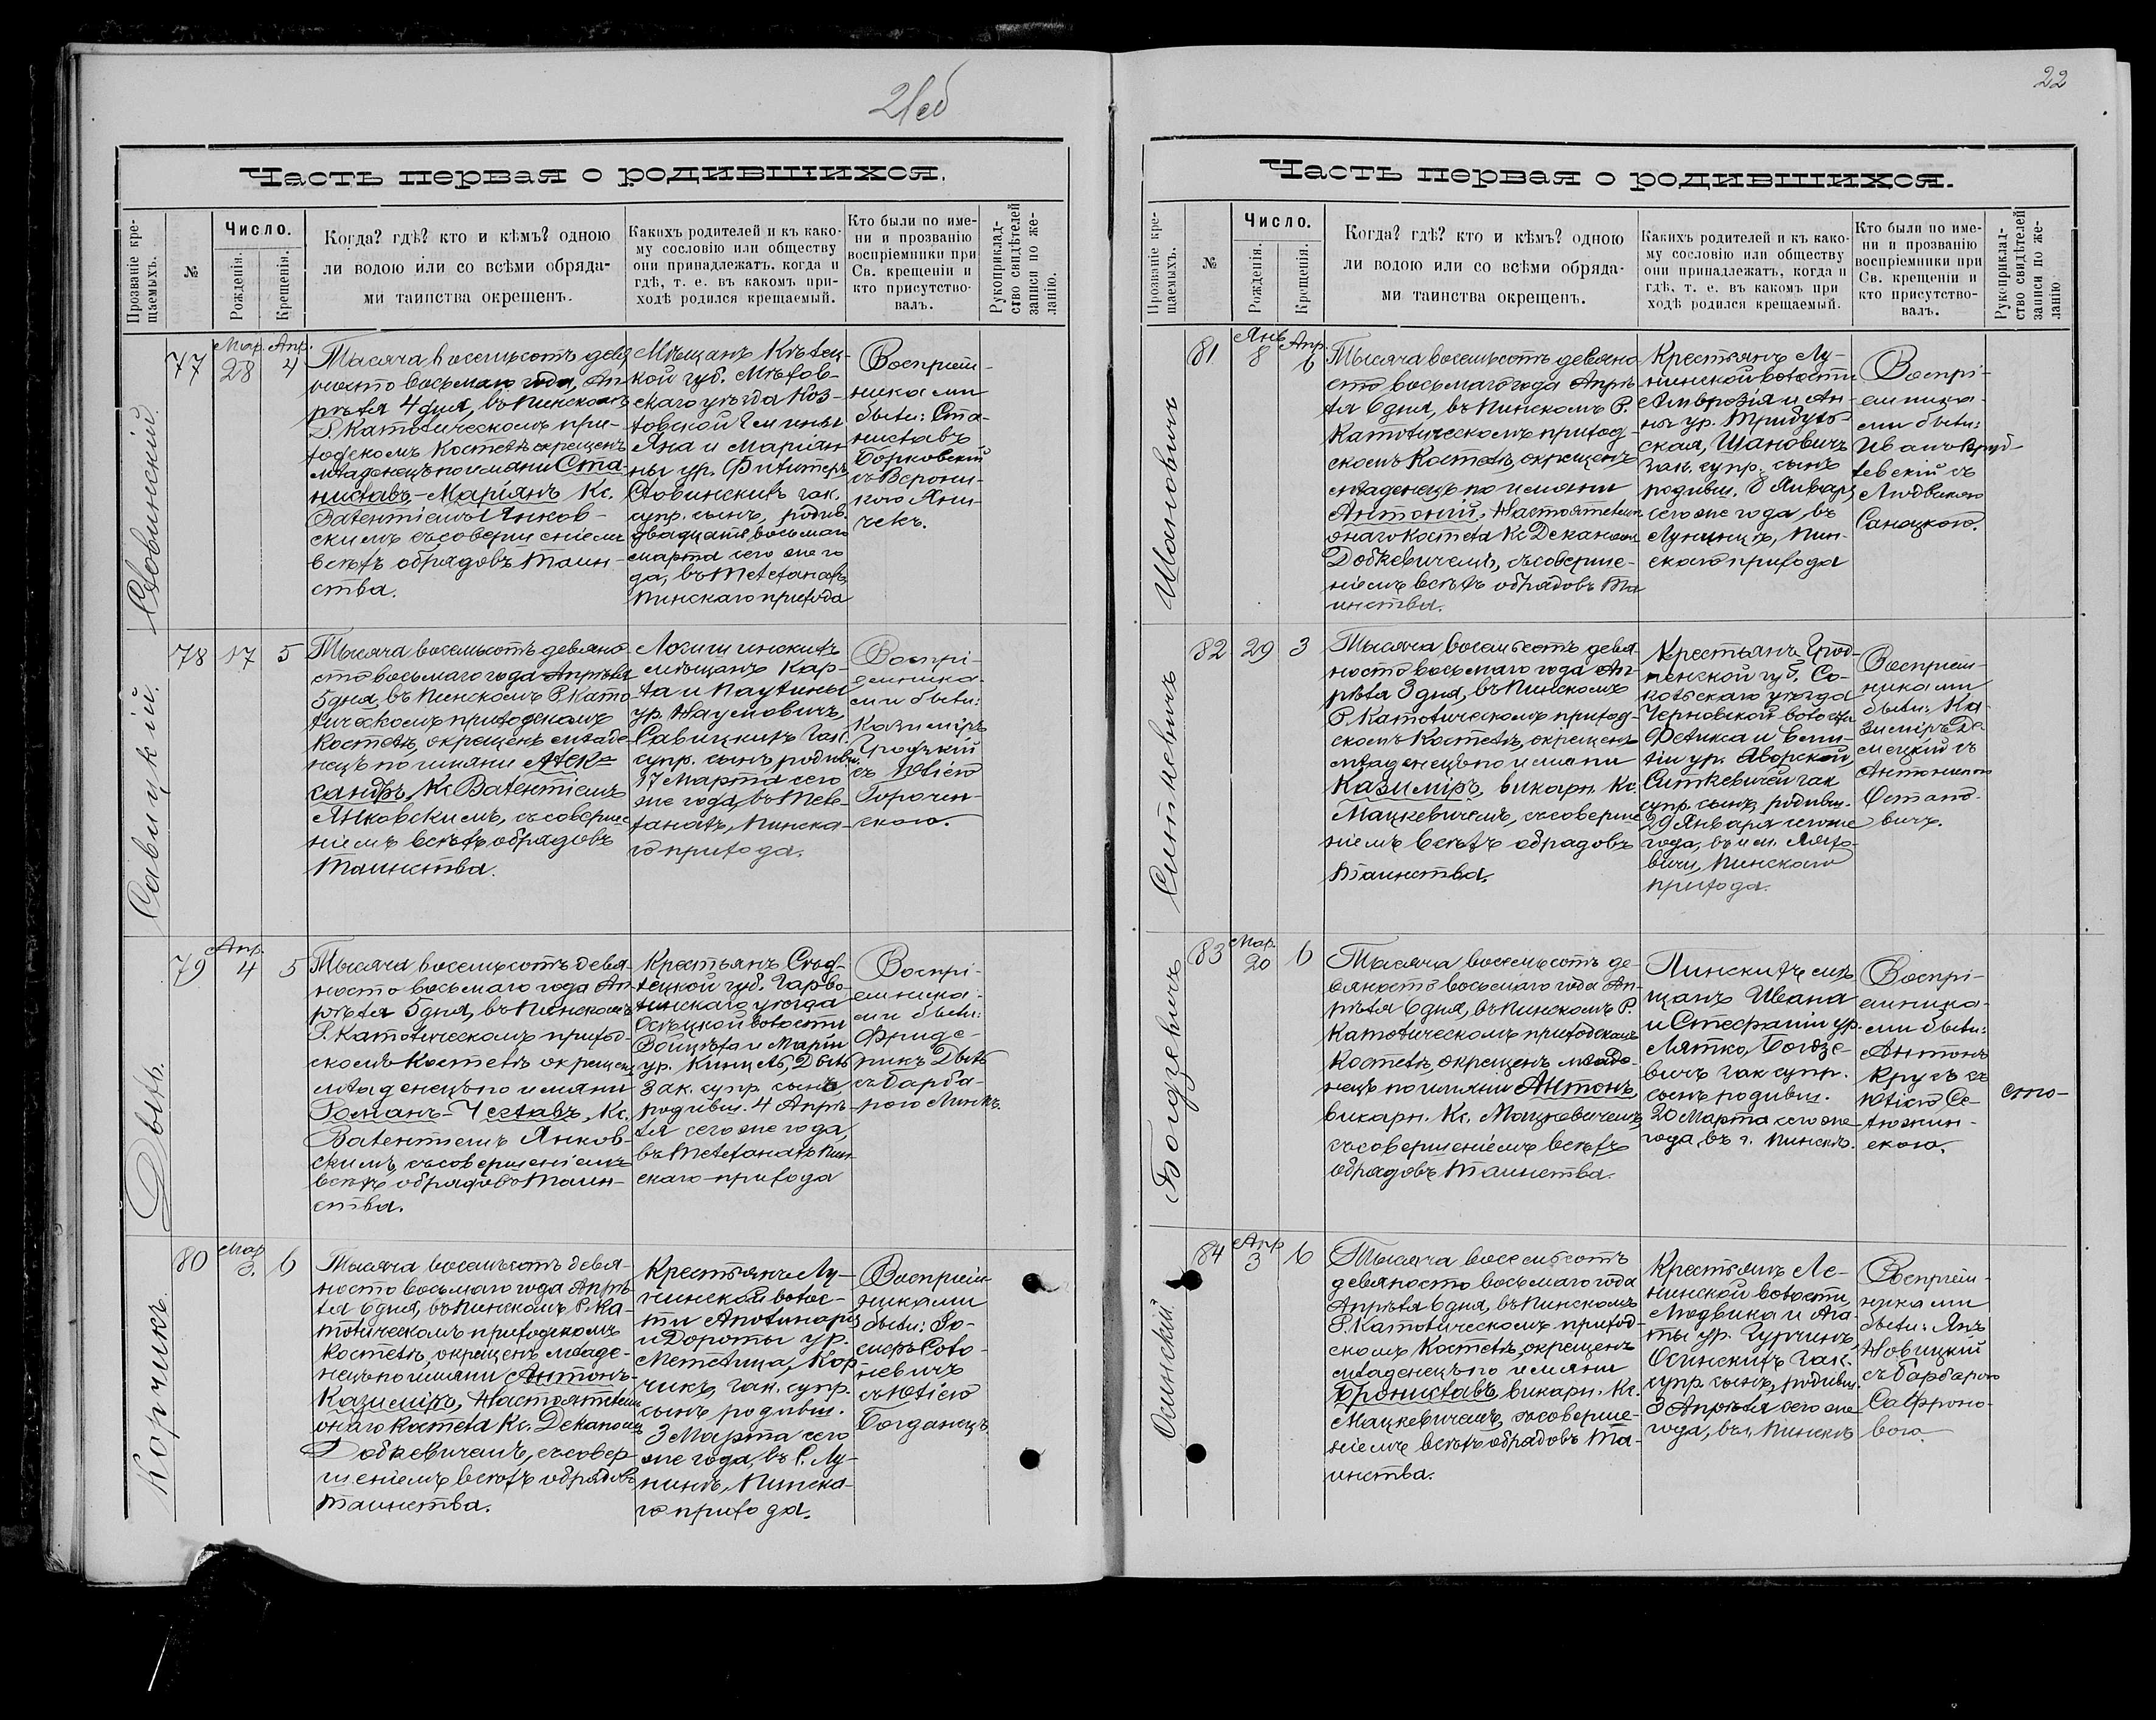 21об
Часть первая о родившихся.
Прозваніе кре-
щаемыхъ.
№
Число.
Рожденія.
Крещенія.
Когда? гдѣ? кто и кѣмъ? одною
ли водою или со всѣми обряда-
ми таинства окрещенъ.
Какихъ родителей и къ како-
му сословію или обществу
они принадлежатъ. когда и
гдѣ, т. е. въ какомъ при-
ходѣ родился крещаемый.
Кто были по име-
ни и прозванію
воспріемники при
Св. крещеніи и
кто присутство-
валъ.
Рукоприклад-
ство свидѣтелей
записи по же-
ланію.
77
Мар. 28
Апр. 4
Тысяча восемьсотъ девя
носто восьмаго года, Ап-
рѣля 4 дня, въ Пинскомъ
Р. Католическомъ при-
ходскомъ Костелѣ окрещенъ
младенецъ по имяни Ста-
ниславъ-Маріянъ Кс.
Валентіемъ Янков-
скимъ съ совершеніемъ
всѣхъ обрядовъ Таин-
ства.
Мѣщанъ Кѣлец-
кой губ. Мѣхов-
скаго уѣзда Коз-
ловской Гмины
Яна и Маріан-
ны ур.
зак.
супр. сынъ, родив.
двадцать восьмаго
марта сего же го
да, въ Телеханахъ
Пинскаго прихода
Воспріем-
никами
были: Ста-
ниславъ
Борковскій
съ Верони-
кою Яни-
чекъ.
Савицкій.
78
17
5
Тысяча восемьсотъ девяно
сто восьмаго года Апрѣля
5 дня, въ Пинскомъ Р. Като
лическомъ приходскомъ
Костелѣ, окрещенъ младе
нецъ по имяни Алек-
сандръ, Кс. Валентіемъ
Янковскимъ, съ соверше
ніемъ всѣхъ обрядовъ
Таинства.
Логишинскихъ
мѣщанъ Кар-
ла и Паулины
ур. Наумовичъ,
Савицкихъ зак.
супр. сынъ родивш.
17 Марта сего
же года, въ Теле-
ханахъ, Пинска-
го прихода.
Воспрі-
емника-
ми были:
Казиміръ
съ Юліею
Горочен-
скою.
79
Апр. 4
5
Тысяча восемьсотъ девя-
носто восьмаго года Ап-
рѣля 5 дня, въ Пинскомъ
Р. Католическомъ приход-
скомъ Костелѣ окрещенъ
младенецъ по имяни
Романъ-Чеславъ, Кс.
Валентіемъ Янков-
скимъ, съ совершеніемъ
всѣхъ обрядовъ Таин-
ства.
Крестьянъ Сѣд-
лецкой губ. Гарво-
линскаго уѣзда
Осѣцкой волости
Войцѣха и Маріи
ур.
зак. супр. сынъ
родивш. 4 Апрѣ-
ля сего же года,
въ Телеханахъ Пин
скаго прихода
Воспрі-
емника-
ми были:
Фриде-
рикъ
съ Барба-
рою
Корчикъ.
80
Мар 3.
6
Тысяча восемьсотъ девя-
носто восьмаго года Апрѣ-
ля 6 дня, въ Пинскомъ Р. Ка-
толическомъ приходскомъ
Костелѣ, окрещенъ младе-
нецъ по имяни Антонъ-
Казиміръ, Настоятелемъ
онаго Костела Кс. Деканомъ
Добкевичемъ, съ совер-
шеніемъ всѣхъ обрядовъ
таинства.
Крестьянъ Лу-
нинской волос-
ти Аполинарія
и Дороты ур.
Метелица, Кор
чикъ, зак. супр.
сынъ родивш.
3 Марта сего
же года, въ С. Лу-
нинѣ, Пинска-
го прихода.
Воспріем-
никами
были: Іо-
сифъ Соло-
невичъ
съ Юліею
Богданецъ.
22
Часть первая о родившихся.
Прозваніе кре-
щаемыхъ.
№
Число.
Рожденія.
Крещенія.
Когда? гдѣ? кто и кѣмъ? одною
ли водою или со всѣми обряда-
ми таинства окрещенъ.
Какихъ родителей и къ како-
му сословію или обществу
они принадлежатъ, когда и
гдѣ, т. е. въ какомъ при
ходѣ родился крещаемый.
Кто были по име-
ни и прозванію
воспріемники при
Св. крещеніи и
кто присутство-
валъ.
Рукоприклад-
ство свидѣтелей
записи по же-
ланію
Шановичъ
81
Янв 8
Апр. 6
Тысяча восемьсотъ девяно
сто восьмаго года Апрѣ
ля 6 дня, въ Пинскомъ Р.
Католическомъ приход-
скомъ Костелѣ, окрещенъ
младенецъ по имяни
Антоній, Настоятелемъ
онаго Костела Кс. Деканомъ
Добкевичемъ, съ соверше-
ніемъ всѣхъ обрядовъ Та
инства.
Крестьянъ Лу-
нинской волости
Амврозія и Ан-
ны ур.
Шановичъ
зак. супр. сынъ
родивш. 8 Января
сего же года въ
Лунинцѣ, Пин-
скаго прихода
Воспрі-
емника-
ми были:
съ
Людвикою
Саноцкою.
Ситкевичъ
82
29
3
Тысяча восемьсотъ девя
носто восьмаго года Ап-
рѣля 3 дня, въ Пинскомъ
Р. Католическомъ приход-
скомъ Костелѣ, окрещенъ
младенецъ по имяни
Казиміръ, викарн. Кс.
Мацкевичемъ, съ соверше
ніемъ всѣхъ обрядовъ
Таинства.
Крестьянъ Грод-
ненской губ. Со-
кольскаго уѣзда
Черновской волости
Феликса и Еми-
ліи ур. Яворской,
Ситкевичей зак
супр. сынъ родивш.
29 Января сего же
года, въ им.
Пинскаго
прихода.
Воспріем-
никами
были: Ка-
зиміръ
съ
Антониною
Остано-
вичъ.
Богдзевичъ
83
Мар. 20
6
Тысяча восемьсотъ де-
вяносто восьмаго года Ап-
рѣля 6 дня, въ Пинскомъ Р.
Католическомъ приходскомъ
Костелѣ, окрещенъ младе-
нецъ по имяни Антонъ,
викарн. Кс. Мацкевичемъ,
съ совершеніемъ всѣхъ
обрядовъ Таинства.
Пинскихъ мѣ
щанъ Ивана
и Стефаніи ур.
Лятко, Богдзе-
вичъ зак супр.
сынъ родивш.
20 Марта сего же
года, въ г. Пинскѣ.
Воспрі-
емника-
ми были:
Антонъ
Кругъ съ
Юліею Се-
люжин-
скою.
Осинскій
84
Апр 3
6
Тысяча восемьсотъ
девяносто восьмаго года
Апрѣля 6 дня, въ Пинскомъ
Р. Католическомъ приход-
скомъ Костелѣ, окрещенъ
младенецъ по имяни
Брониславъ, викарн. Кс.
Мацкевичемъ, съ соверше-
ніемъ всѣхъ обрядовъ Та-
инства.
Крестьянъ Ле-
нинской волости
Людвика и Ага-
ты ур. Гурчинъ,
Осинскихъ зак.
супр. сынъ, родивш.
3 Апрѣля сего же
года, въ г. Пинскѣ
Воспріем-
никами
были: Янъ
Новицкій
съ Барбарою
Сафроно-
вою.